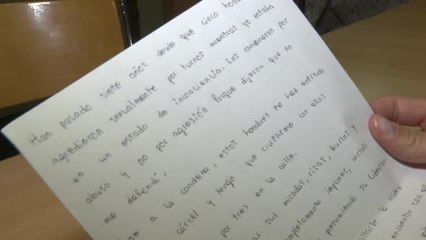 Han pasado siete años desde que cinco hom
agredieron sexualmente por turnos mientras yo estaba
en un estado de inconsciencia. Los condenaron por
abuso y no por agresión porque dijeron que no
me defendí.
a la condena, estos hombres no han entrado
cárcel y tengo que cruzarme con ellos
por tres en la calle.
sus miradas, risas, burlas y
completamente impunes, incluso
presumiendo su